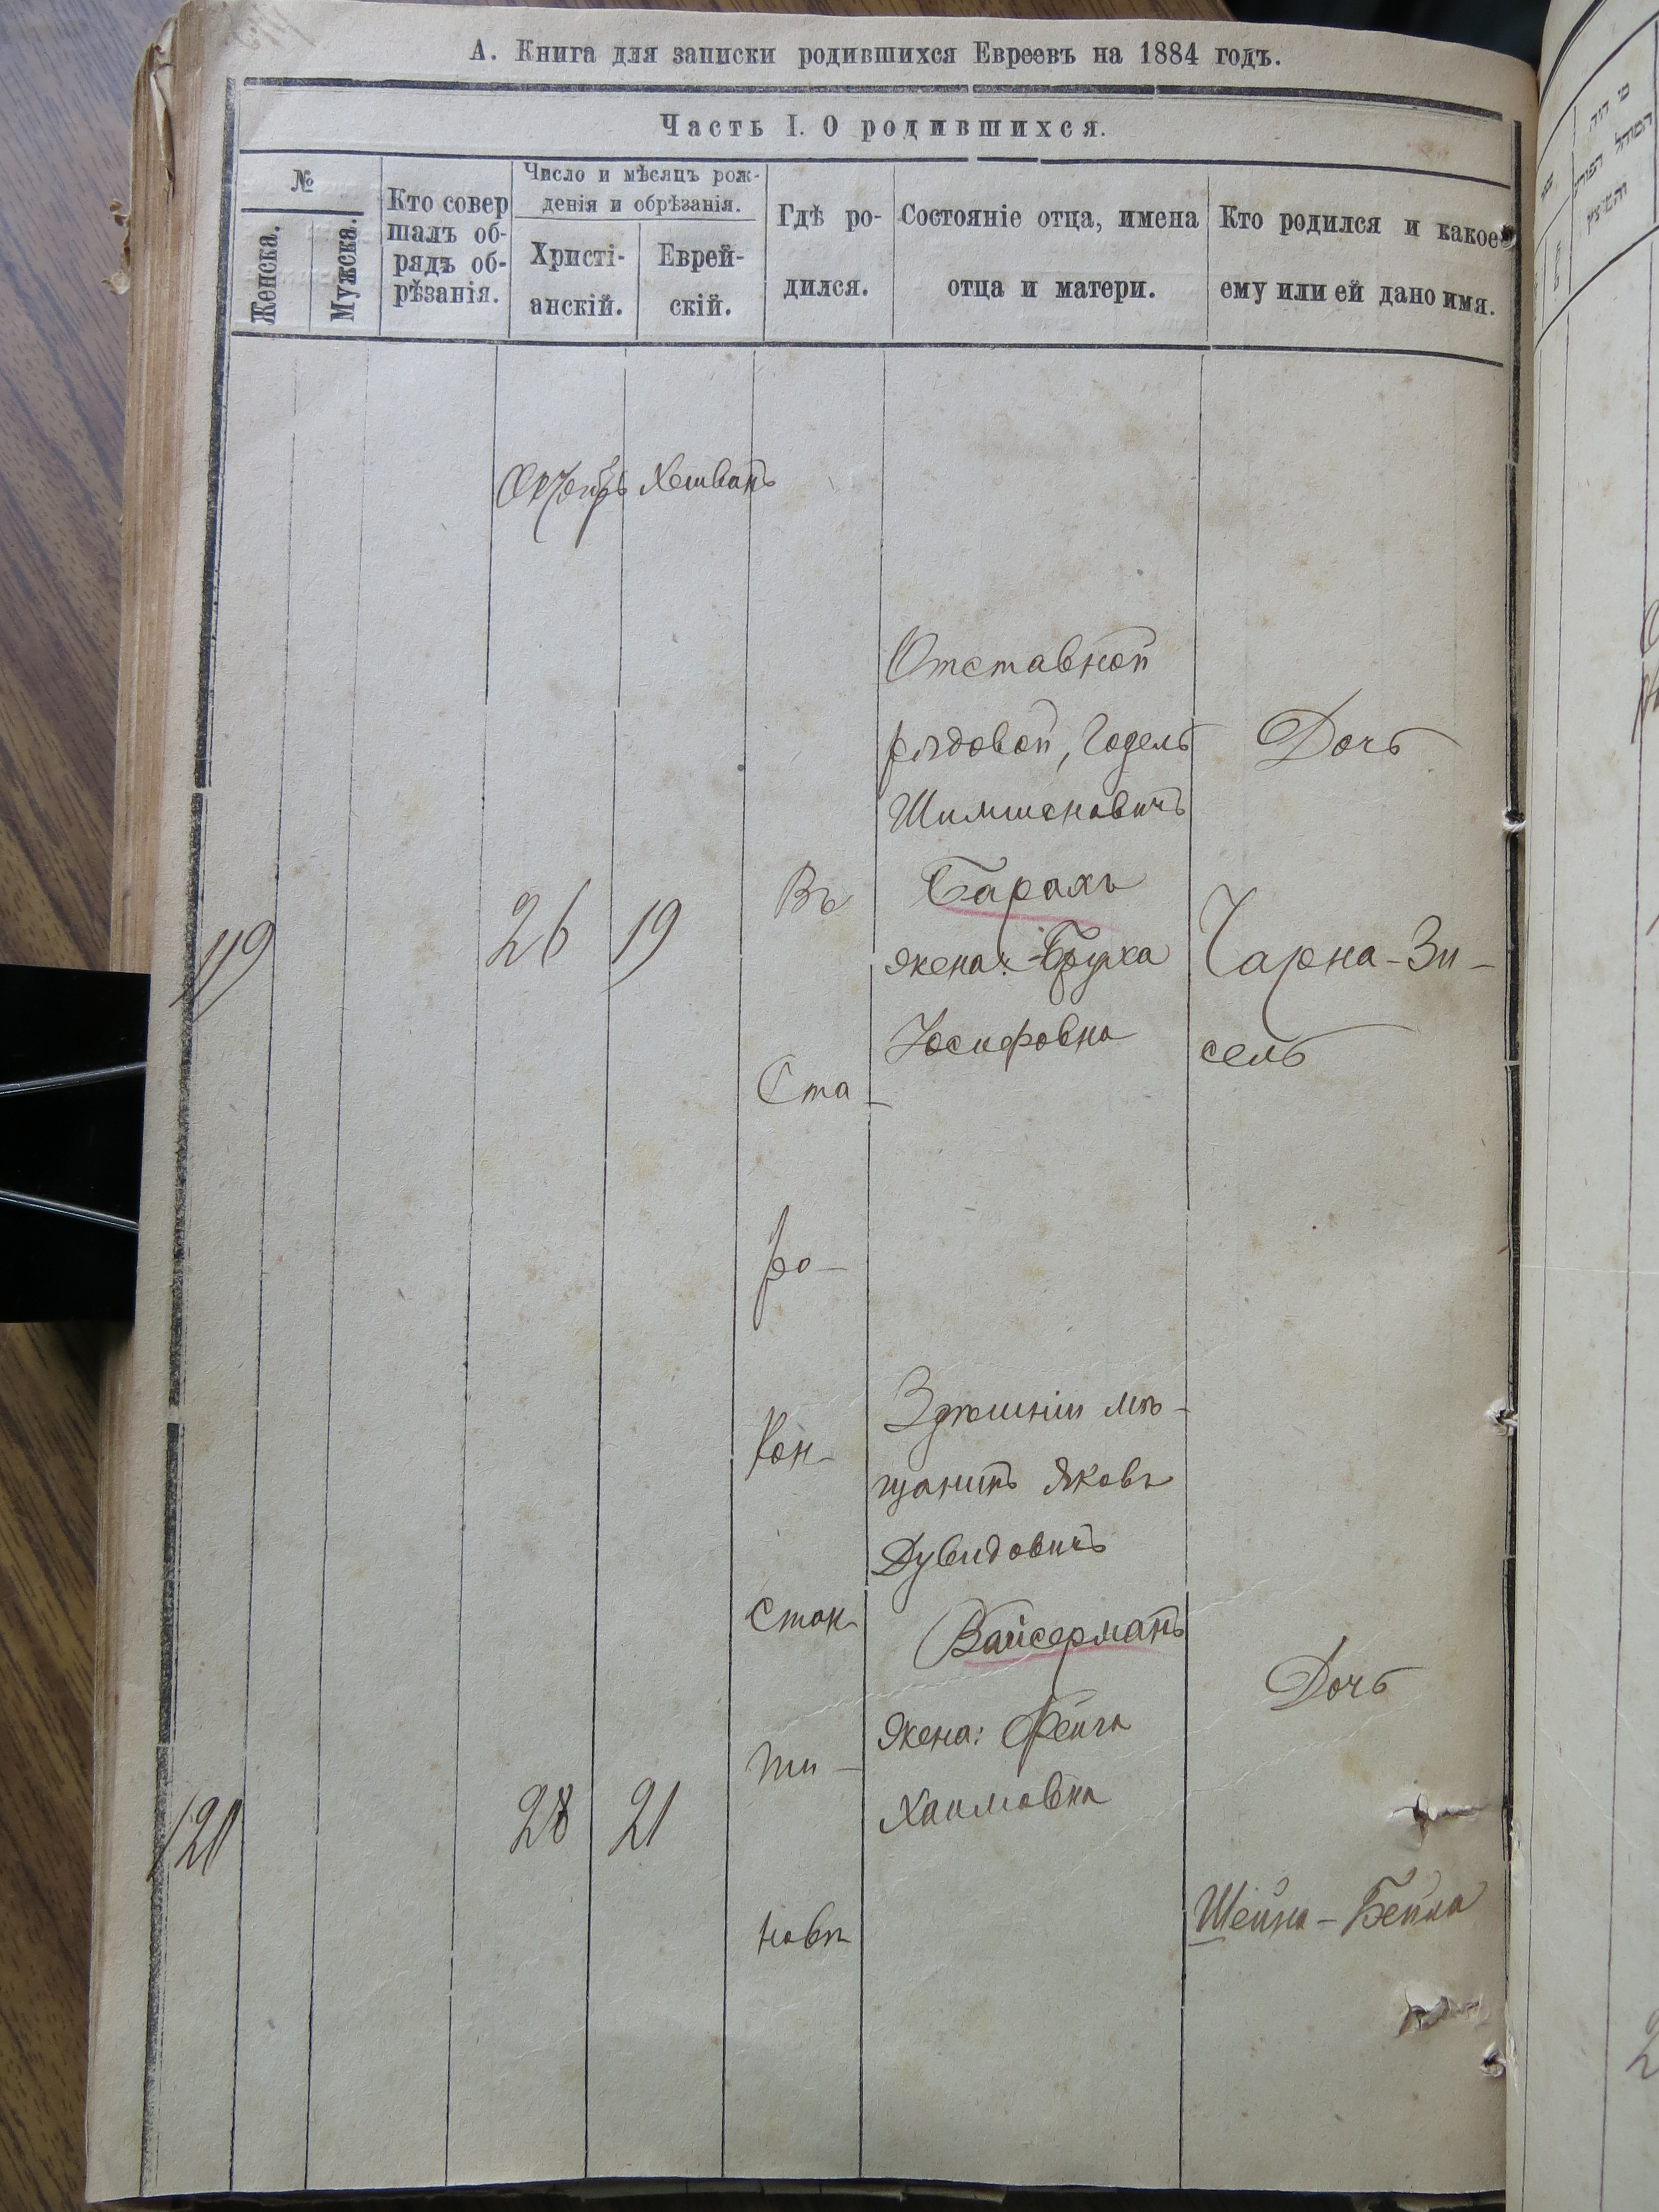 А. Книга для записки родившихся Евреевъ на 1884 годъ.
Часть I. О родившихся.
№
Женска.
Мужска.
Кто совер
шалъ об-
рядъ об-
рѣзанія.
Число и мѣсяцъ рож-
денія и обрѣзанія.
Христі-
анскій.
Еврей-
скій.
Гдѣ ро-
дился.
Состояніе отца, имена
отца и матери.
Кто родился и какое
ему или ей дано имя.
Октябрь Хешванъ
119
26
19
Въ
Ста-
ро-
кон-
стан-
ти-
новѣ
Отставной
рядовой, Годель
Шимшоновичъ
Барахъ
жена: Бруха
Іосифовна
Дочь
Чарна-Зи-
сель
120
28
21
Здѣшній мѣ-
щанинъ Яковъ
Дувидовичъ
Вайсерманъ
жена: Фейга
Хаимовна
Дочь
Шейна-Бейла